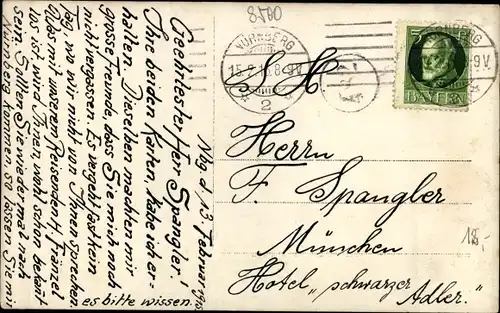 8500
NÜRNBERG
8-9V
2
BAYERN
5
S. H.
Herrn
F. Spangler
München
Hotel „schwarzer
Adler."
12,-
Nbg d/13 Februar
Geehrtester Herr Spangler!
Ihre beiden Karten, habe ich er-
halten Dieselben machten mir
grosse Freunde, dass Sie mich noch
nicht vergessen. Es vergeht fast kein
Tag, wo wir nicht von Ihnen sprechen.
Aber mit unseren Reserendent Fränzel
los ist, wird Ihnen, wohl schon bekannt
sein. Sollten Sie wieder mal nach
Nürnberg kommen, so lassen Sie mir
es bitte wissen.